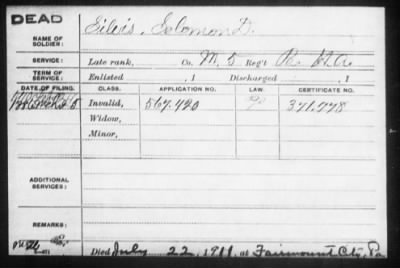 DEAD
NAME OF SOLDIER: Silvis, Solomon D.
SERVICE: Late rank, Co. M. 5 Reg't Pa. H.A.
TERM OF SERVICE: Enlisted , 1 Discharged , 1
DATE OF FILING. CLASS. APPLICATION NO. LAW. CERTIFICATE NO.
Invalid, 567.420 371.778
Widow,
Minor,
ADDITIONAL SERVICES:
REMARKS:
Died July 22, 1911, at Fairmount City, Pa